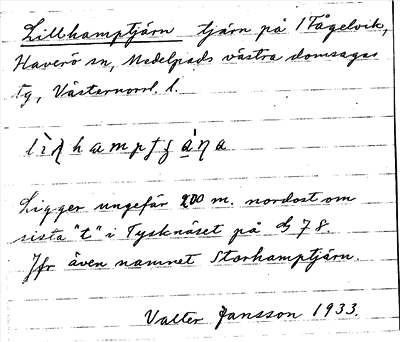 Lillhamptjärn tjärn på 1 Fågelvik,
Haverö sn, Medelpads västra domsagas
tg, Västernorrl. l.
Ligger ungefär 200 m. nordost om
sista "t" i Tysknäset på dg 78.
Jfr även namnet Storhamptjärn.
Valter Jansson 1933.